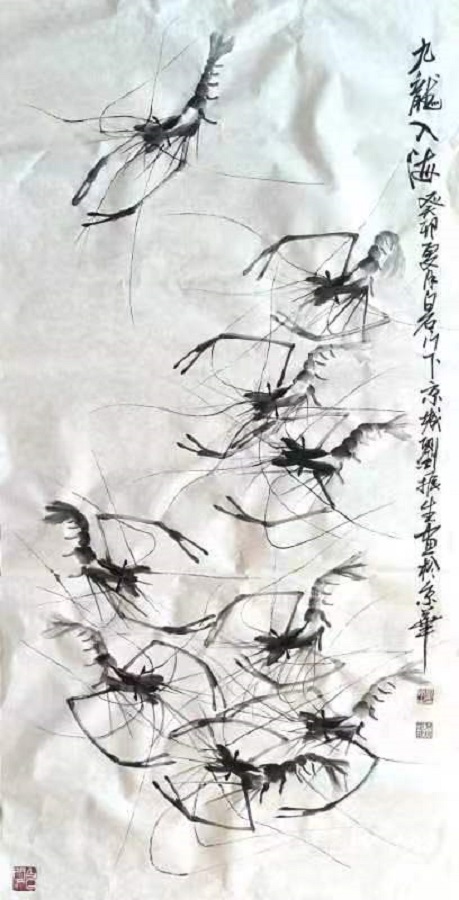 九龍入海癸卯夏月白石门下京城劉振生畫於京華